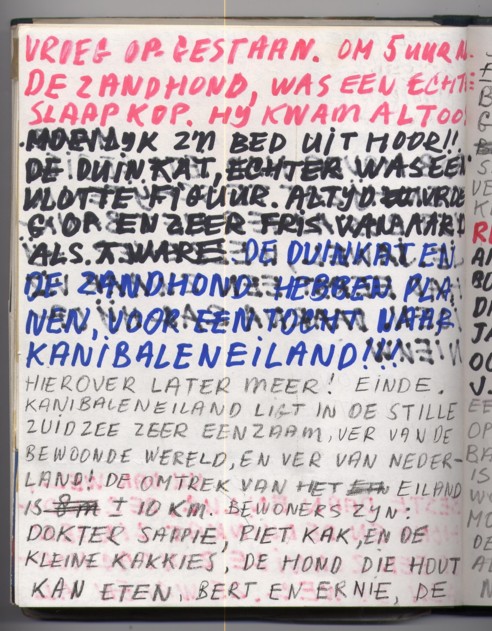 VROEG OP GESTAAN. OM 5 UUR N.
DE ZANDHOND, WAS EEN ECHTE
SLAAPKOP. HY KWAM ALTOO
MOEILYK Z'N BED UIT HOOR!!
DE DUINKAT, ECHTER WAS EEN
VLOTTE FIGUUR. ALTYD VURDE
OP EN ZEER FRIS
ALS. DE DUINKAT EN
DE ZANDHOND HEBBEN PLA-
NEN, VOOR EEN TOCHT NAAR
KANIBALENEILAND!!
HIEROVER LATER MEER! EINDE.
KANIBALENEILAND LIGT IN DE STILLE
ZUIDZEE ZEER EENZAAM, VER VAN DE
BEWOONDE WERELD, EN VER VAN NEDER-
LAND! DE OMTREK VAN HET EILAND
IS ± 10 KM. BEWONERS ZYN:
DOKTER SAPPIE, PIET KAK, EN DE
KLEINE KAKKIES, DE HOND DIE HOUT
KAN ETEN, BERT EN ERNIE, DE